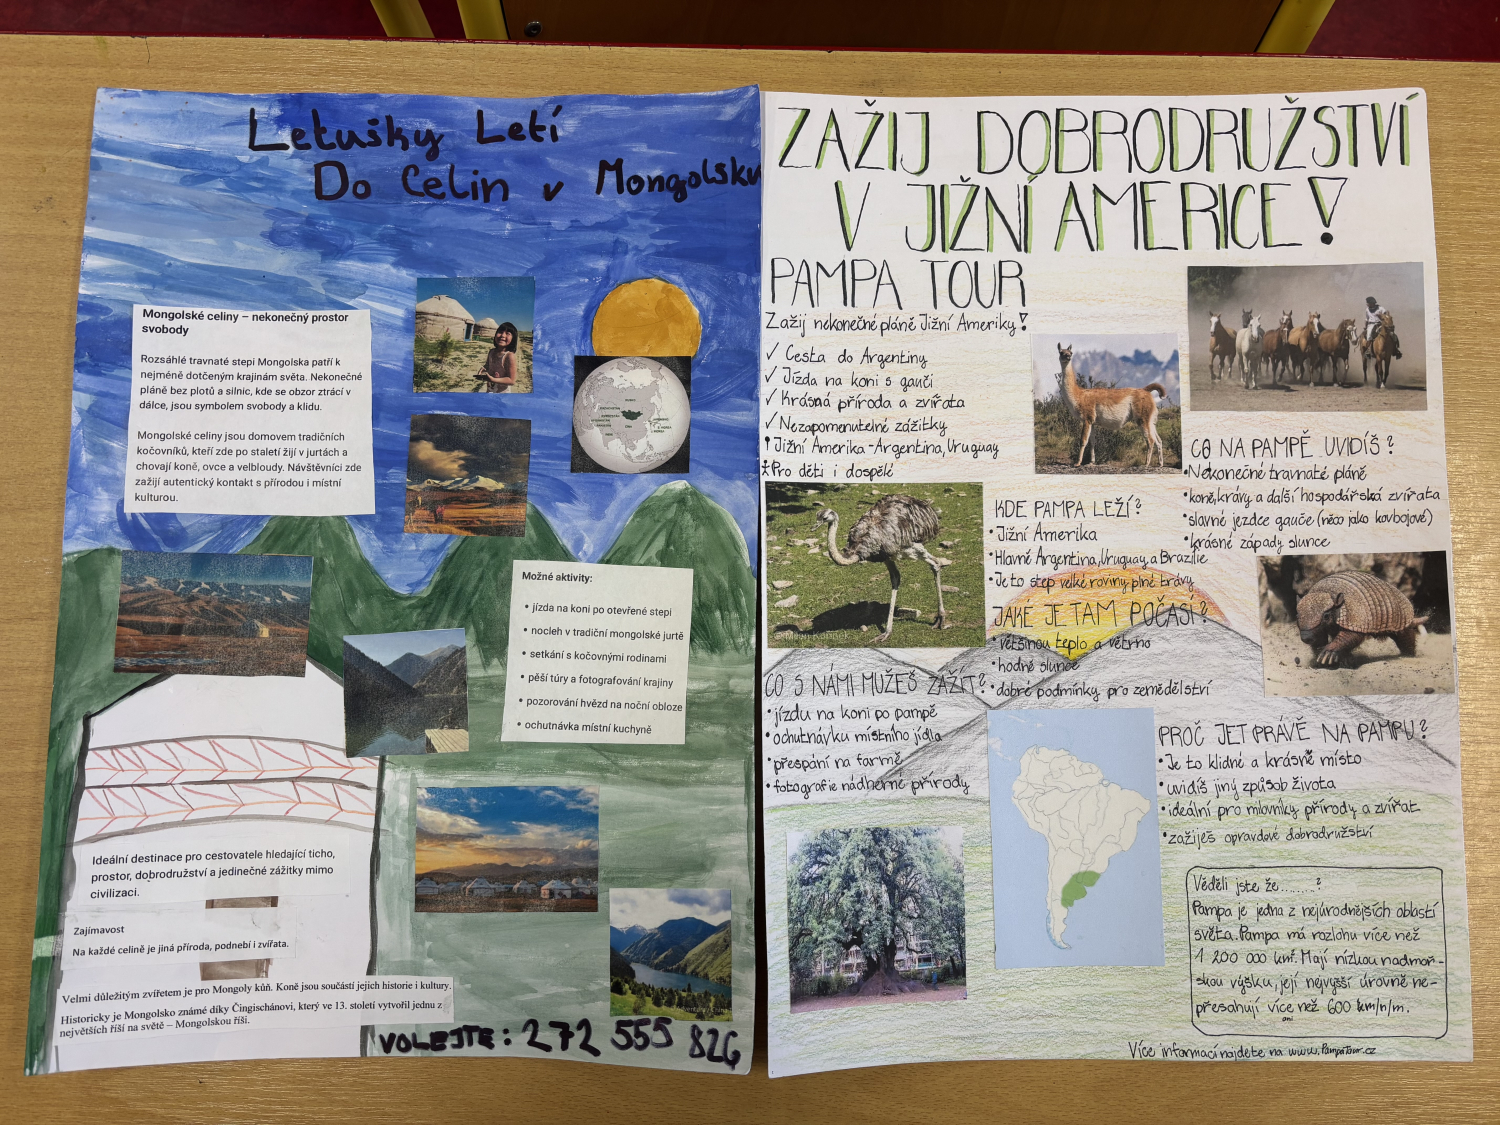 Letušky Letí
Do Celin v Mongolsku
Mongolské celiny – nekonečný prostor
svobody
Rozsáhlé travnaté stepi Mongolska patří k
nejméně dotčeným krajinám světa. Nekonečné
pláně bez plotů a silnic, kde se obzor ztrácí v
dálce, jsou symbolem svobody a klidu.
Mongolské celiny jsou domovem tradičních
kočovníků, kteří zde po staletí žijí v jurtách a
chovají koně, ovce a velbloudy. Návštěvníci zde
zažijí autentický kontakt s přírodou i místní
kulturou.
Možné aktivity:
• jízda na koni po otevřené stepi
• nocleh v tradiční mongolské jurtě
• setkání s kočovnými rodinami
• pěší túry a fotografování krajiny
• pozorování hvězd na noční obloze
• ochutnávka místní kuchyně
Ideální destinace pro cestovatele hledající ticho,
prostor, dobrodružství a jedinečné zážitky mimo
civilizaci.
Zajímavost
Na každé celině je jiná příroda, podnebí i zvířata.
Velmi důležitým zvířetem je pro Mongoly kůň. Koně jsou součástí jejich historie i kultury.
Historicky je Mongolsko známé díky Čingischánovi, který ve 13. století vytvořil jednu z
největších říší na světě – Mongolskou říši.
VOLEJTE: 272 555 826
ZAŽIJ DOBRODRUŽSTVÍ
V JIŽNÍ AMERICE!
PAMPA TOUR
Zažij nekonečné pláně Jižní Ameriky!
✓ Cesta do Argentiny
✓ Jízda na koni s gauči
✓ Krásná příroda a zvířata
✓ Nezapomenutelné zážitky
Jižní Amerika-Argentina, Uruguay
Pro děti i dospělé
CO NA PAMPĚ UVIDÍŠ?
• Nekonečné travnaté pláně
• koně, krávy a další hospodářská zvířata
• slavné jezdce gauče (něco jako kovbojové)
• krásné západy slunce
KDE PAMPA LEŽÍ?
• Jižní Amerika
• Hlavně Argentina, Uruguay a Brazílie
• Je to step velké roviny plné trávy
JAKÉ JE TAM POČASÍ?
• většinou teplo a větrno
• hodně slunce
• dobré podmínky pro zemědělství
CO S NÁMI MŮŽEŠ ZAŽÍT?
• jízdu na koni po pampě
• ochutnávku místního jídla
• přespání na farmě
• fotografie nádherné přírody
PROČ JET PRÁVĚ NA PAMPU?
• Je to klidné a krásné místo
• uvidíš jiný způsob života
• ideální pro milovníky přírody a zvířat
• zažiješ opravdové dobrodružství
Věděli jste že.........?
Pampa je jedna z nejúrodnějších oblastí
světa. Pampa má rozlohu více než
1 200 000 km². Mají nízkou nadmoř-
skou výšku, její nejvyšší úrovně ne-
přesahují více než 600 km/n/m.
ani
Více informací najdete na www.PampaTour.cz